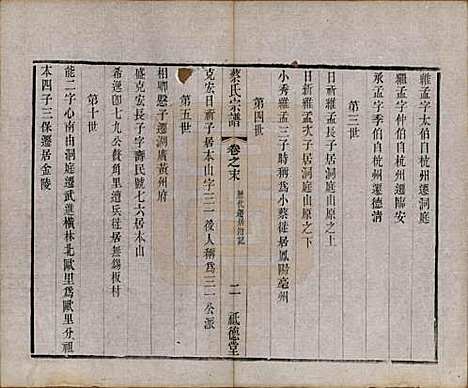 維孟字太伯自杭州遷洞庭
繼孟字仲伯自杭州遷臨安
承孟字季伯自杭州遷德清
第三世
日祈維孟長子居洞庭山原之上
日新維孟次子居洞庭山原之下
小秀維孟三子時稱爲小蔡徙居鳳陽亳州
第四世
蔡氏宗譜 卷之末 歷代遷居附記 二 祗德堂
克宏日祈子居本山字三一後人稱爲三一公派
第五世
相卿新子遷湖廣黃州府
盛克宏長子字壽民號七六居本山
希遜卽七九公贅角里遭兵徙居無錫板村
第十世
能二字心南由洞庭遷武進橫林北歐里爲歐里分祖
本四子三保遷居金陵